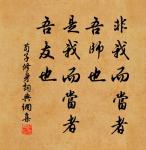 非我而當者
吾師也
是我而當者
吾友也
荀子修身詞典網集